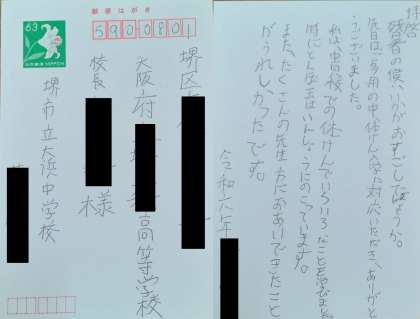 郵便はがき
63
NIPPON
5900801
堺区
大阪府
高等学校
校長
様
堺市立大浜中学校
拝啓
残暑の候、いかがおすごしでしょうか。
先日は、多用の中、体けん入学に対応いただき、ありがと
うございました。
私は、貴校での体けんでいろいろなこと
特に
はいんしょうにのこっています。
また、たくさんの先生方におあいできたこと
がうれしかったです。
令和六年